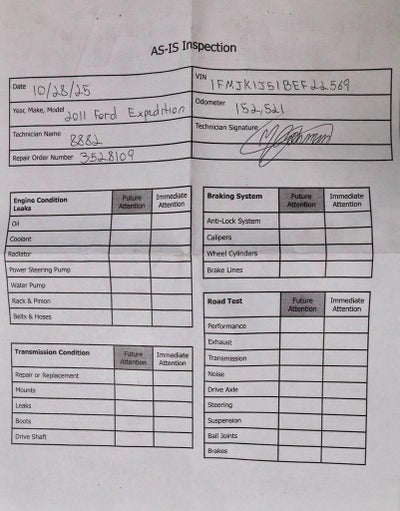 AS-IS Inspection
Date 10/28/25
VIN 1FMJK1J51BEF22569
Year, Make, Model 2011 Ford Expedition
Odometer 152,521
Technician Name 8882
Technician Signature
Repair Order Number 3528109
Engine Condition Future Attention Immediate Attention
Leaks
Oil
Coolant
Radiator
Power Steering Pump
Water Pump
Rack & Pinion
Belts & Hoses
Transmission Condition Future Attention Immediate Attention
Repair or Replacement
Mounts
Leaks
Boots
Drive Shaft
Braking System Future Attention Immediate Attention
Anti-Lock System
Calipers
Wheel Cylinders
Brake Lines
Road Test Future Attention Immediate Attention
Performance
Exhaust
Transmission
Noise
Drive Axle
Steering
Suspension
Ball Joints
Brakes